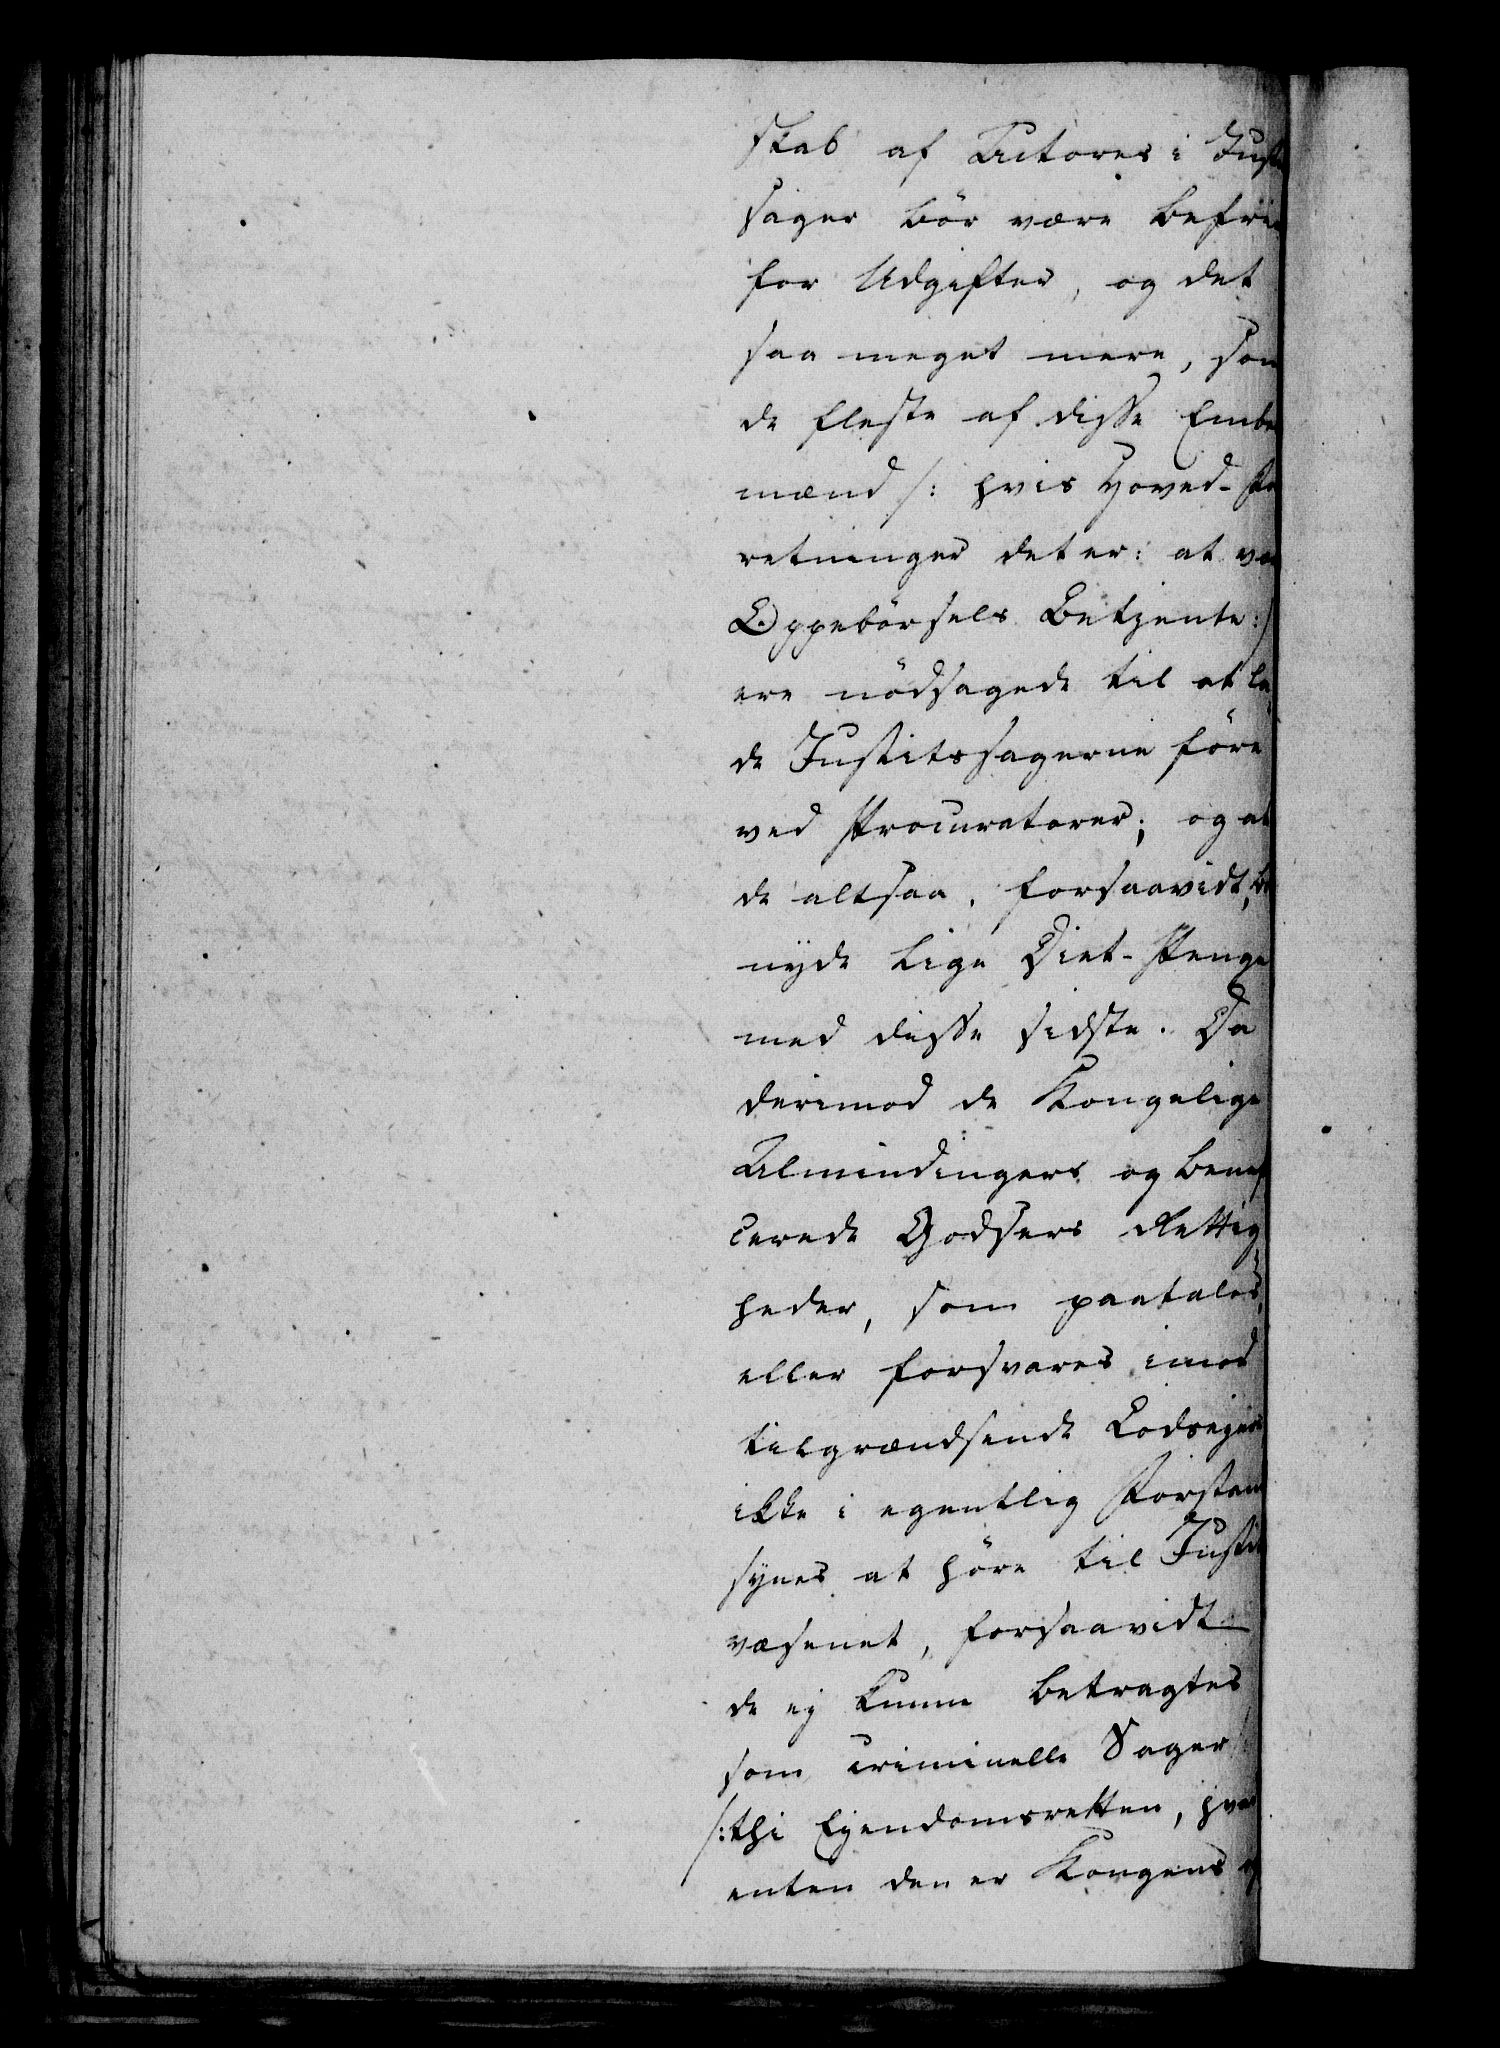 skab af Actores i Just
sager bör være befrie
for Udgifter, og det
saa meget mere, som
de fleste af disse Embe
mænd /: hvis Hoved-For
retninger det er: at væ
Oppebörsels Betjente:/
ere nödsagede til at la
de Justitssagerne före
ved Procuratorer; og at
de altsaa, forsaavidt, bö
nyde lige Diet-Penge
med disse sidste. Da
derimod de Kongelige
Almindingers og benef
cerede Godsers Rettig
heder, som paatales,
eller forsvares imod
tilgrændsende Lodsejere
ikke i egentlig Forstand
synes at höre til Justits
væsenet, forsaavidt
de ej kunne betragtes
som criminelle Sager
/:thi Ejendomsretten, hvad
enten den er Kongens